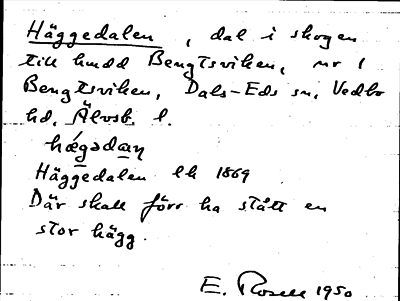 Häggedalen, dal i skogen
till hmdd Bengtsviken, nr 1
Bengtsviken, Dals-Eds sn, Vedbo
hd, Älvsb. l.
hǽgədaṉ
Häggedalen lk 1869
Där skall förr ha stått en
stor hägg.
E. Rosell 1950